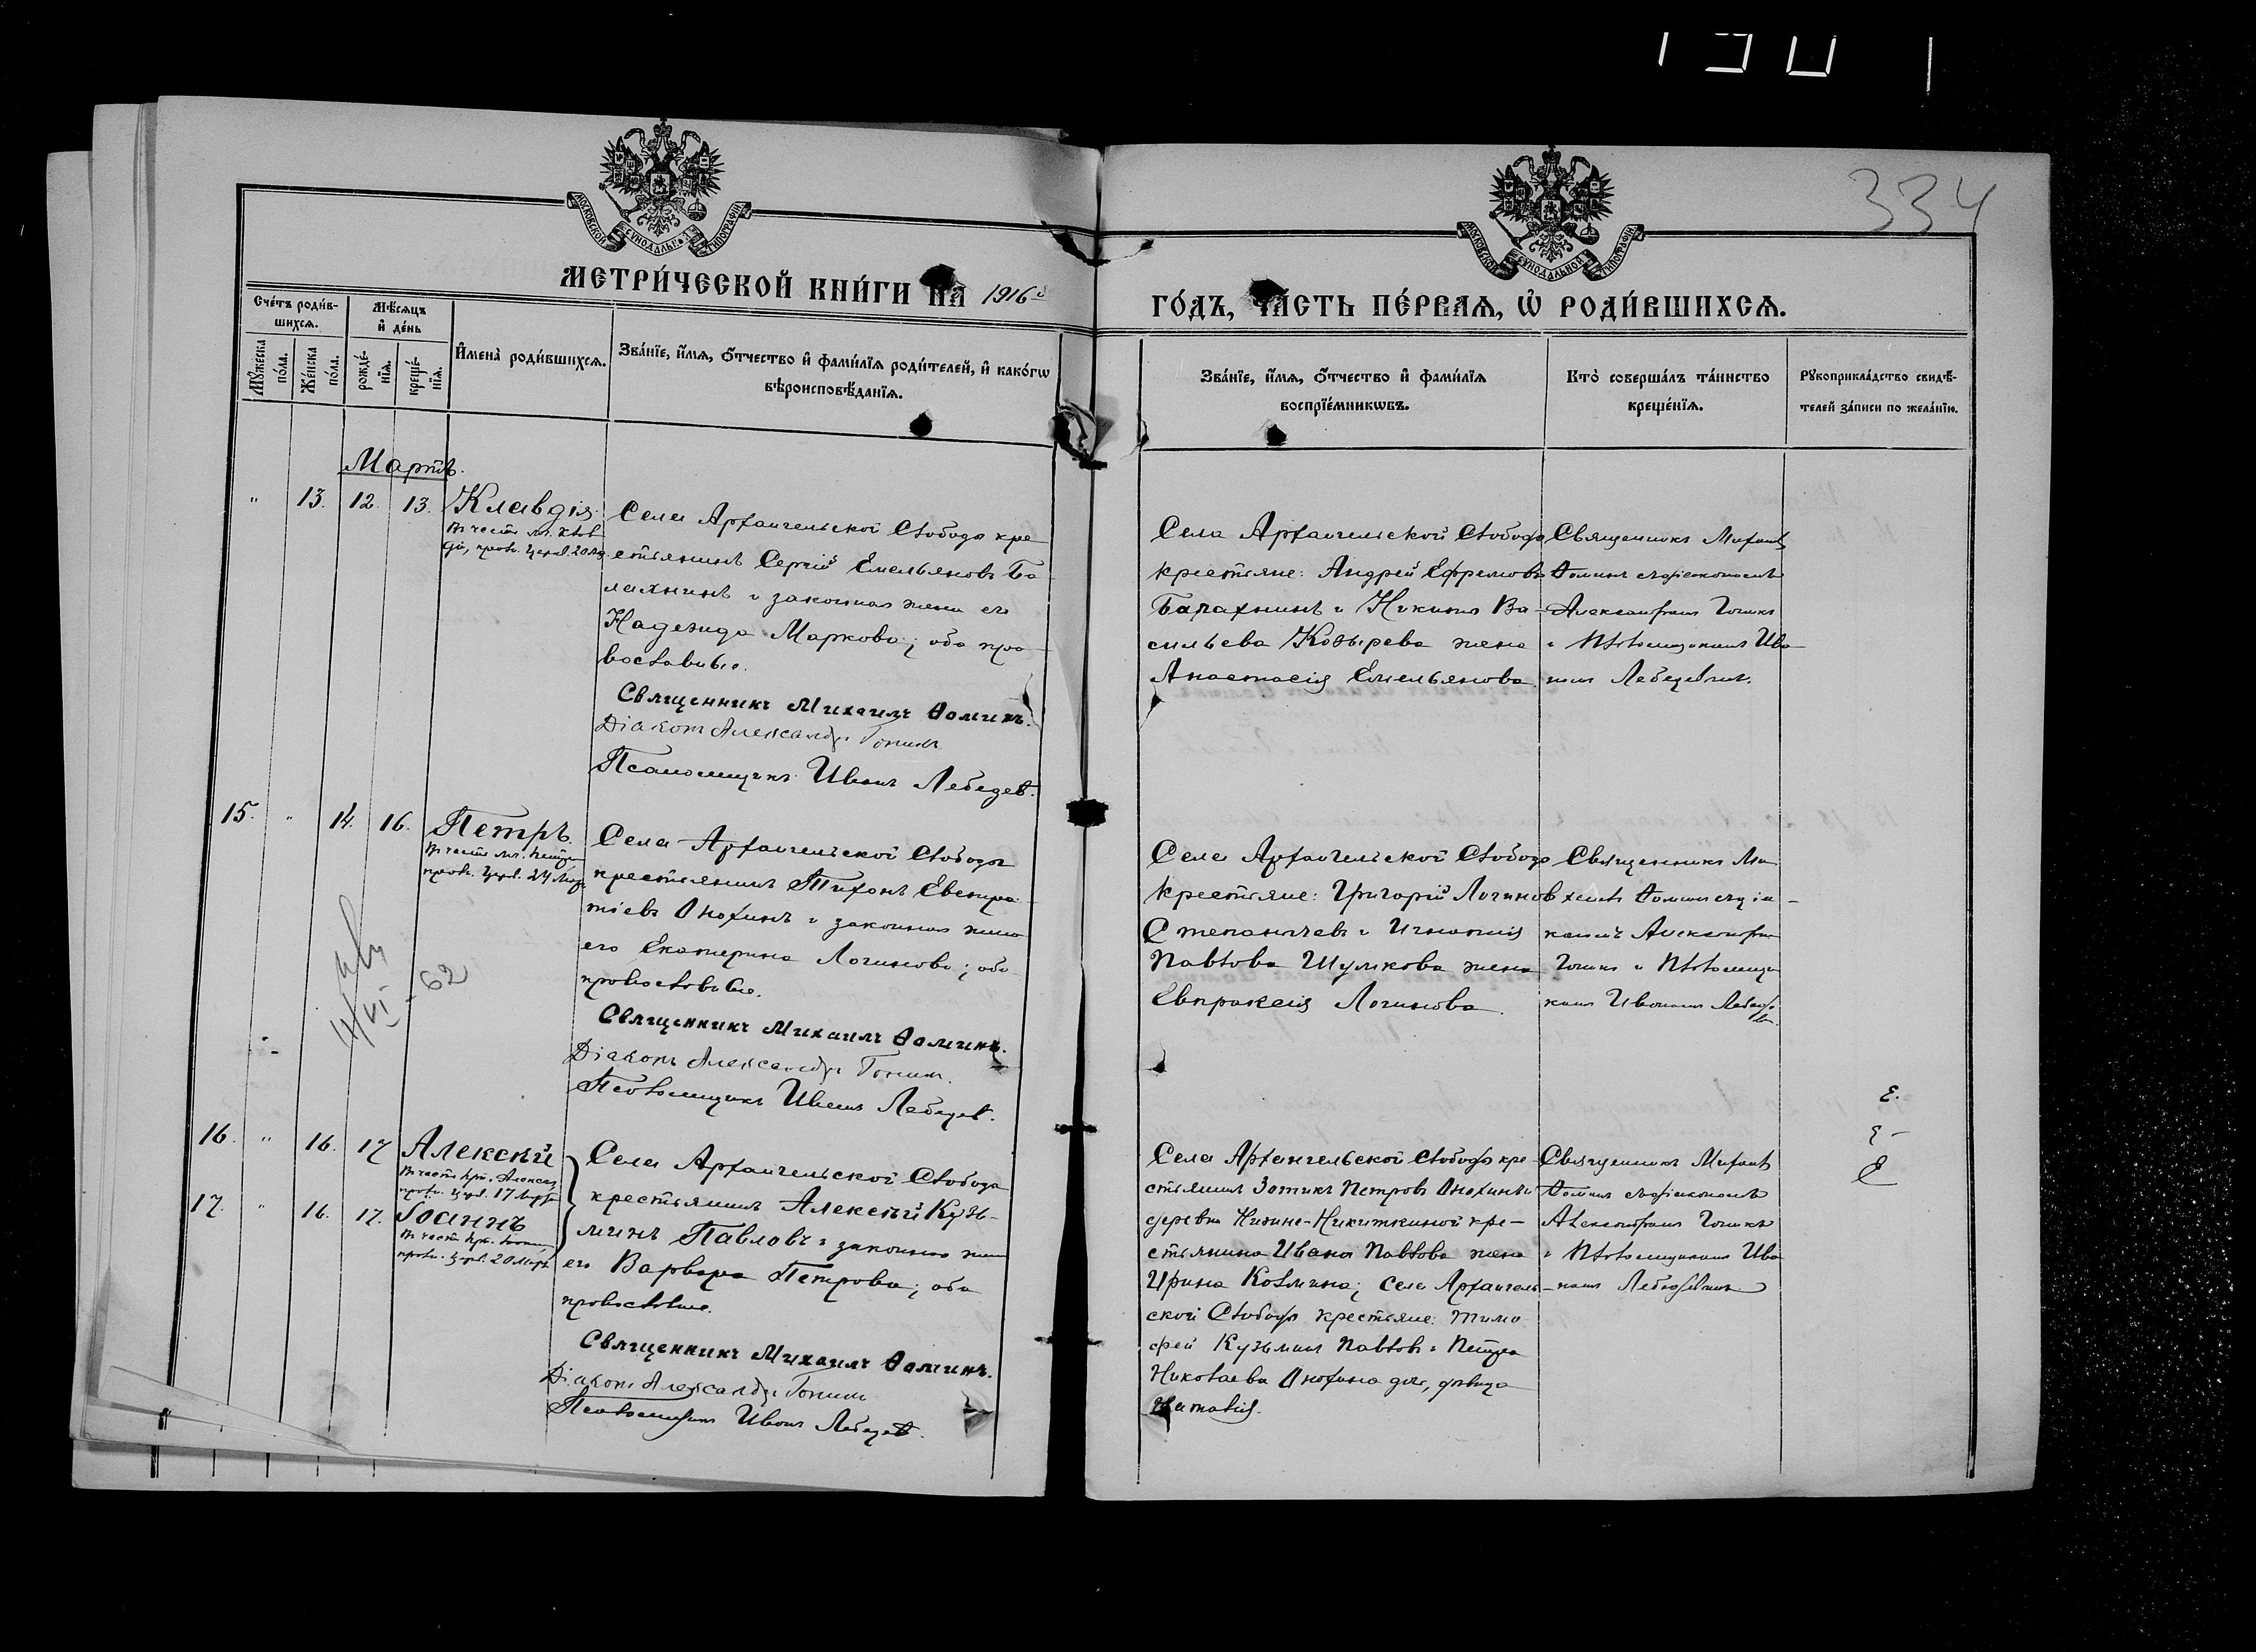 334
МОСКОВСКОЙ СѴНОДАЛЬНОЙ ТИПОГРАФІИ
МОСКОВСКОЙ СѴНОДАЛЬНОЙ ТИПОГРАФІИ
МЕТРИ́ЧЕСКОЙ КНИ́ГИ НА 1916
ГО́ДЪ, ЧА́СТЬ ПЕ́РВАЯ, Ѡ РОДИ́ВШИХСЯ.
Сче́тъ роди́в-
шихся.
Мѣ́сяцъ
и де́нь
Му́жеска
по́ла.
Же́нска
по́ла.
рожде́-
нія.
креще́-
нія.
Имена̀ роди́вшихся.
Зва́нїе, и́мя, о́тчество и фами́лїя роди́телей, и како́гѡ
вѣроисповѣ́данїя.
Зва́нїе, и́мя, о́тчество и фами́лїя
воспрїе́мникѡвъ.
Кто̀ соверша́лъ та́инство
креще́нїя.
Рукоприкла́дство свидѣ́-
телей за́писи по жела́нїю.
Мартъ.
" 13. 12. 13. Клавдія.
Села Архангельской Слободы кре
стьянинъ Сергій Емельяновъ Ба
лахнинъ и законная жена его
Надежда Маркова; оба пра
вославные.
Священникъ Михаилъ Ѳоминъ.
Діаконъ Александръ Гонинъ
Псаломщикъ Иванъ Лебедевъ.
Села Архангельской Слободы
крестьяне: Андрей Ефремовъ
Балахнинъ и Никиты Ва-
сильева Козырева жена
Анастасія Емельянова.
Священникъ Михаилъ
Ѳоминъ съ діакономъ
Александромъ
и Псаломщикомъ Ива
номъ Лебедевымъ.
15. " 14. 16. Петръ.
Села Архангельской Слободы
крестьянинъ Тихонъ
Онохинъ и законная жена
его Екатерина Логинова; оба
православные.
Священникъ Михаилъ Ѳоминъ.
Діаконъ Александръ Гонинъ.
Псаломщикъ Иванъ Лебедевъ.
Села Архангельской Слободы
крестьяне: Григорій Логиновъ
Степанычевъ и Игнатія
Павлова Шумкова жена
Евпраксія Логинова.
Священникъ Ми
хаилъ Ѳоминъ съ діа-
кономъ Александромъ
и Псаломщи
комъ Иваномъ Лебеде
62
16. " 16. 17 Алексѣй
17. " 16. 17. Іоаннъ
Села Архангельской Слободы
крестьянинъ Алексѣй Кузь-
минъ Павловъ и законная жена
его Варвара Петрова; оба
православные.
Священникъ Михаилъ Ѳоминъ.
Діаконъ Александръ Гонинъ
Псаломщикъ Иванъ Лебедевъ.
Села Архангельской Слободы кре-
стьянинъ Зотикъ Петровъ Онохинъ и
деревни Никиткиной кре-
стьянина Ивана Павлова жена
Ирина Козмина; села Архангель-
ской Слободы крестьяне: Тимо
фей Кузьминъ Павловъ и Петра
Николаева Онохина дочь, дѣвица
Наталія.
Священникъ Михаилъ
Ѳоминъ съ діакономъ
Александромъ
и Псаломщикомъ Ива
номъ Лебедевымъ